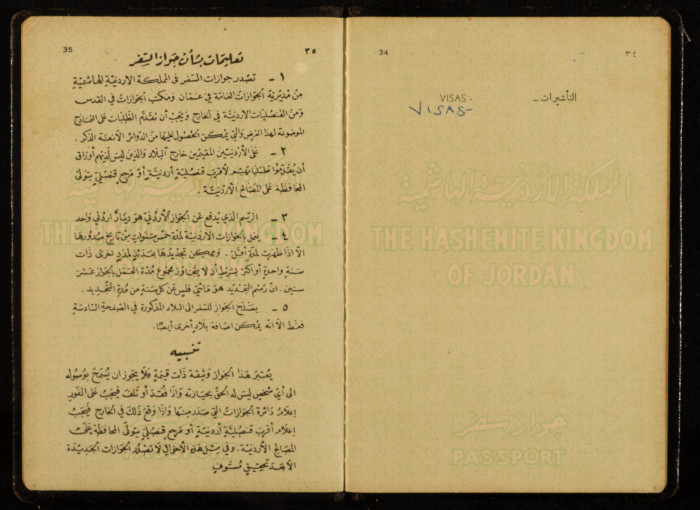 35
٣٥
تعليمات بشأن جواز السفر
١ - تصدر جوازات السفر في المملكة الاردنية الهاشمية
من مديرية الجوازات العامة في عمان ومكتب الجوازات في القدس
ومن القنصليات الاردنية في الخارج ويجب أن تقدم الطلبات على النماذج
الموضوعة لهذا الغرض والتي يمكن الحصول عليها من الدوائر الآنفة الذكر.
٢ - على الأردنيين المقيمين خارج البلاد والذين ليس لديهم أوراق
أن يقدموا طلباتهم لأقرب قنصلية أردنية أو مرجع قنصلي يتولى
المحافظة على المصالح الأردنية.
٣ - الرسم الذي يدفع عن الجواز الأردني هو دينار اردني واحد
٤ - يعمل بالجوازات الاردنية لمدة خمس سنوات من تاريخ صدورها
الا اذا أعطيت لمدة أقل. ويمكن تجديدها بعد ذلك لمدد اخرى ذات
سنة واحدة أو أكثر بشرط أن لا يتجاوز مجموع مدة العمل بالجواز عشر
سنين. ان رسم التجديد هو مائتي فلس عن كل سنة من مدة التجديد.
٥ - يصلح الجواز للسفر الى البلاد المذكورة في الصفحة السادسة
فقط الا انه يمكن اضافة بلاد أخرى أيضا.
تنبيه
يعتبر هذا الجواز وثيقة ذات قيمة فلا يجوز ان يسمح بوصوله
الى أي شخص ليس له الحق بحيازته واذا فقد أو تلف فيجب على الفور
إعلام دائرة الجوازات التي صدر منها واذا وقع ذلك في الخارج فيجب
إعلام أقرب قنصلية أردنية أو مرجع قنصلي يتولى المحافظة على
المصالح الأردنية. وفي مثل هذه الاحوال لا تصدر الجوازات الجديدة
الا بعد تحقيق مستوف
34
٣٤
VISAS -
التأشيرات -
VISAS-
المملكة الأردنية الهاشمية
THE HASHEMITE KINGDOM
OF JORDAN
جواز سفر
PASSPORT